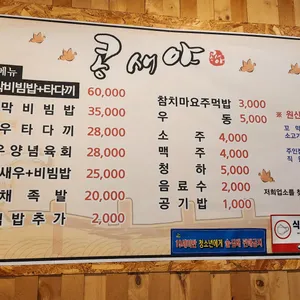 콩새야
메뉴
비빔밥+타다끼 60,000
막비빔밥 35,000
우타다끼 28,000
우양념육회 28,000
새우+비빔밥 25,000
채족발 20,000
밥추가 2,000
참치마요주먹밥 3,000
우동 5,000
소주 4,000
맥주 4,000
청하 5,000
음료수 2,000
공기밥 1,000
※ 원산
19세미만 청소년에게 술·담배 판매금지
저희업소를